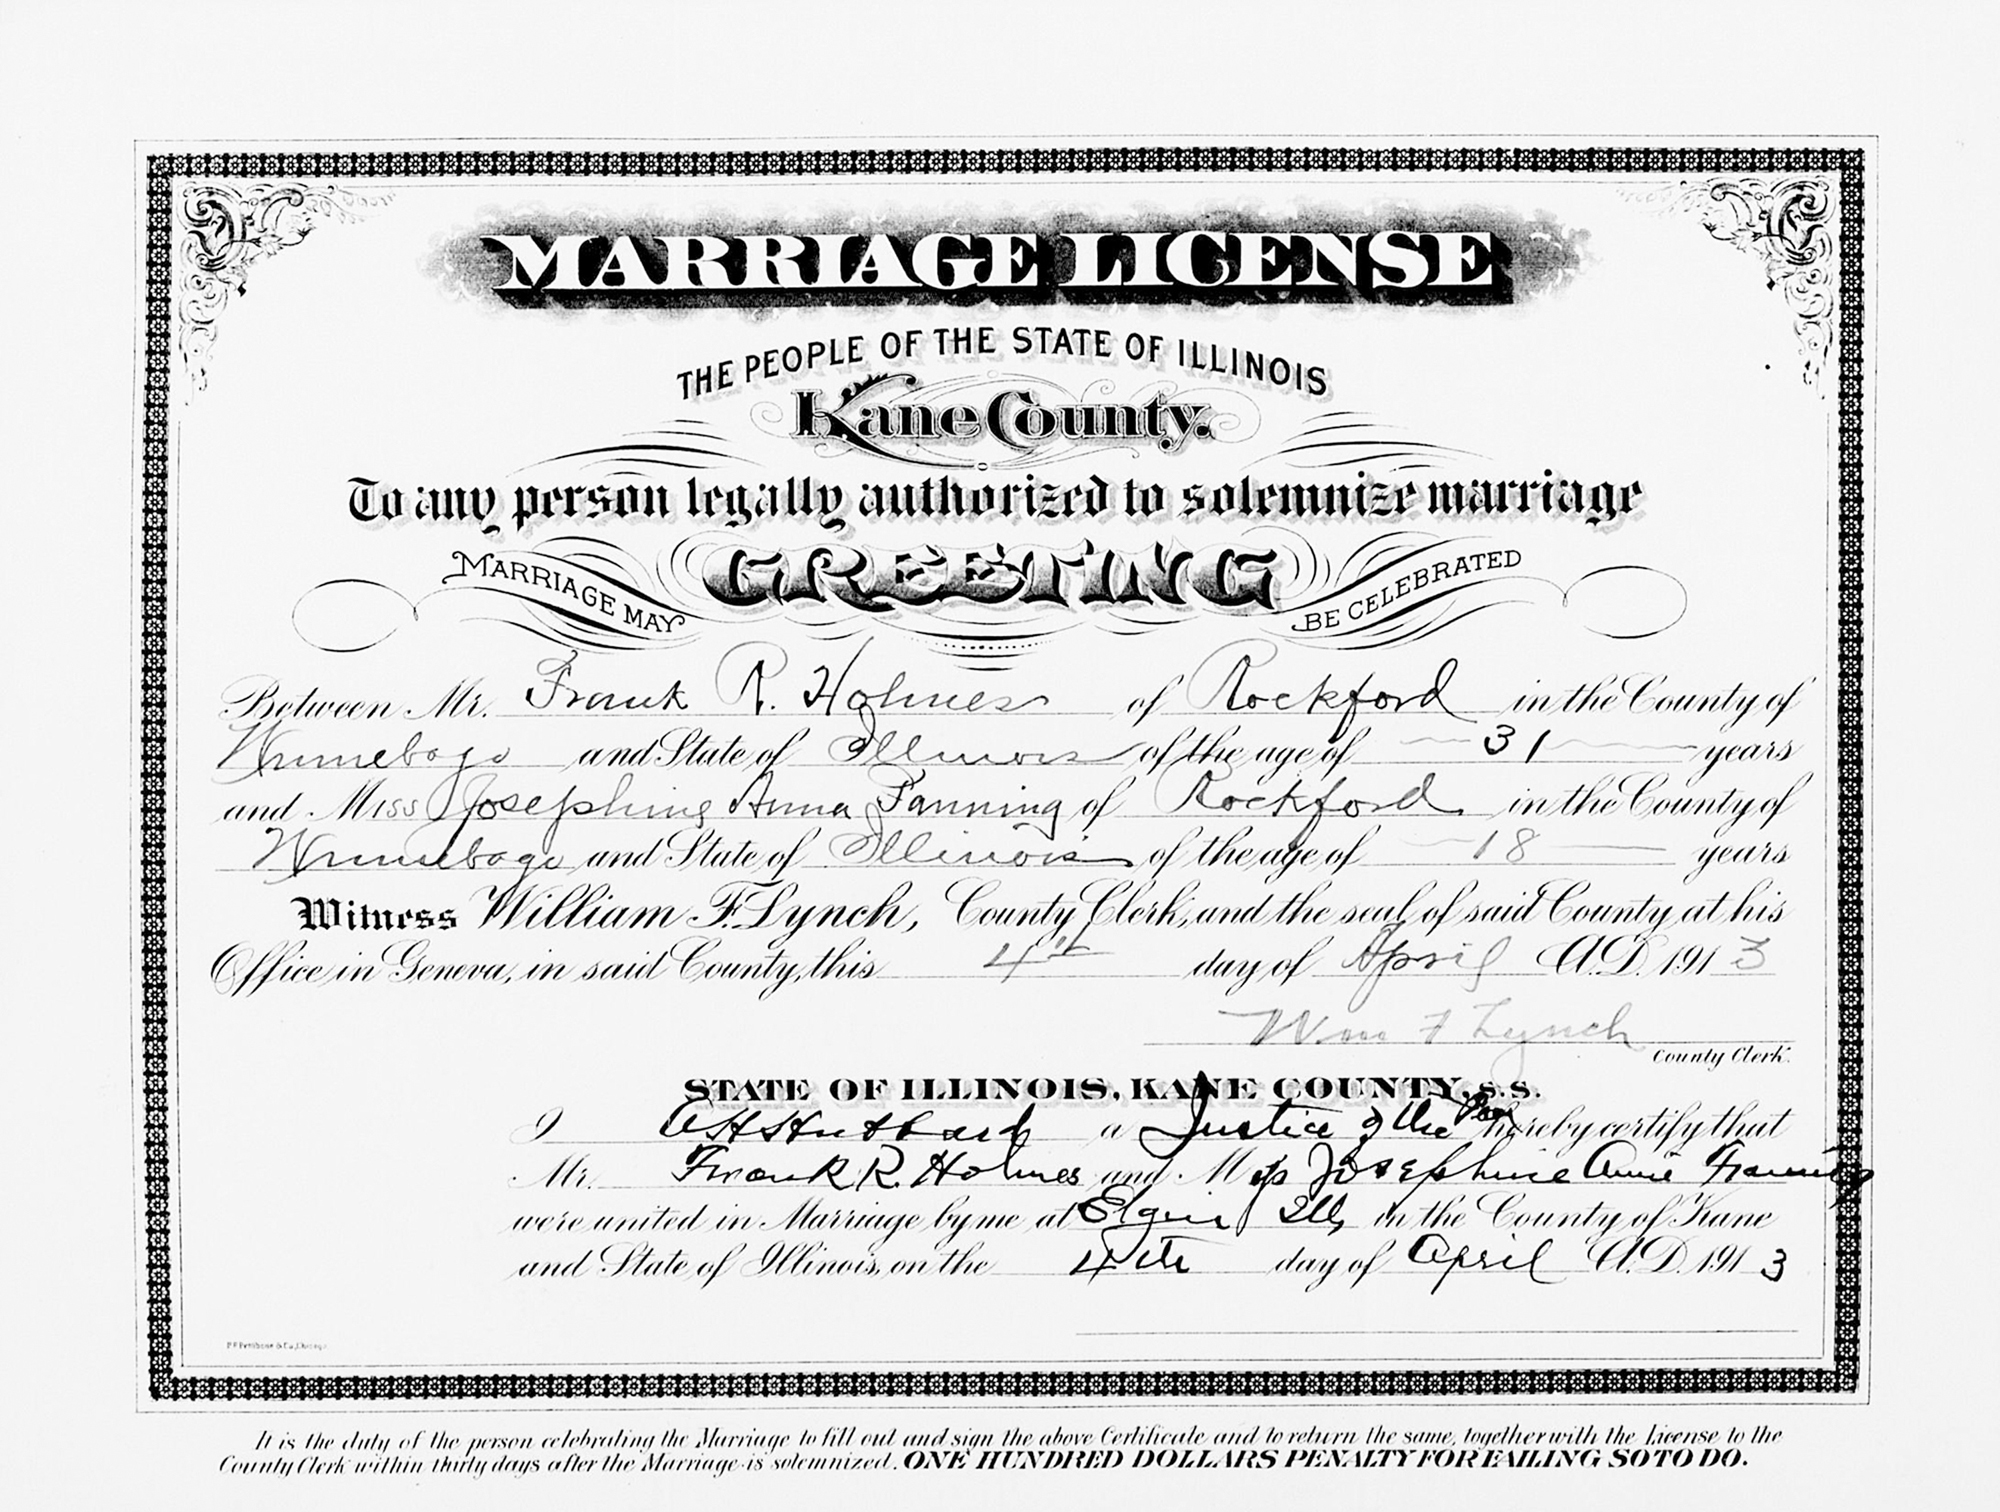 MARRIAGE LICENSE
THE PEOPLE OF THE STATE OF ILLINOIS
Kane County.
To any person legally authorized to solemnize marriage
MARRIAGE MAY GREETING BE CELEBRATED
Between Mr. Frank R. Holmes of Rockford in the County of
Winnebago and State of Illinois of the age of 31 years
and Miss Josephine Anna Fanning of Rockford in the County of
Winnebago and State of Illinois of the age of 18 years
Witness William F. Lynch, County Clerk, and the seal of said County at his
Office in Geneva, in said County, this 4th day of April A.D. 1913
Wm F Lynch
County Clerk.
STATE OF ILLINOIS, KANE COUNTY, s.s.
I A H Hubbard a Justice of the Peace hereby certify that
Mr. Frank R. Holmes and Miss Josephine Anna Fanning
were united in Marriage by me at Elgin Ills in the County of Kane
and State of Illinois, on the 4th day of April A.D. 1913
P.F. Pettibone & Co., Chicago.
It is the duty of the person celebrating the Marriage to fill out and sign the above Certificate and to return the same, together with the License to the
County Clerk within thirty days after the Marriage is solemnized. ONE HUNDRED DOLLARS PENALTY FOR FAILING SO TO DO.